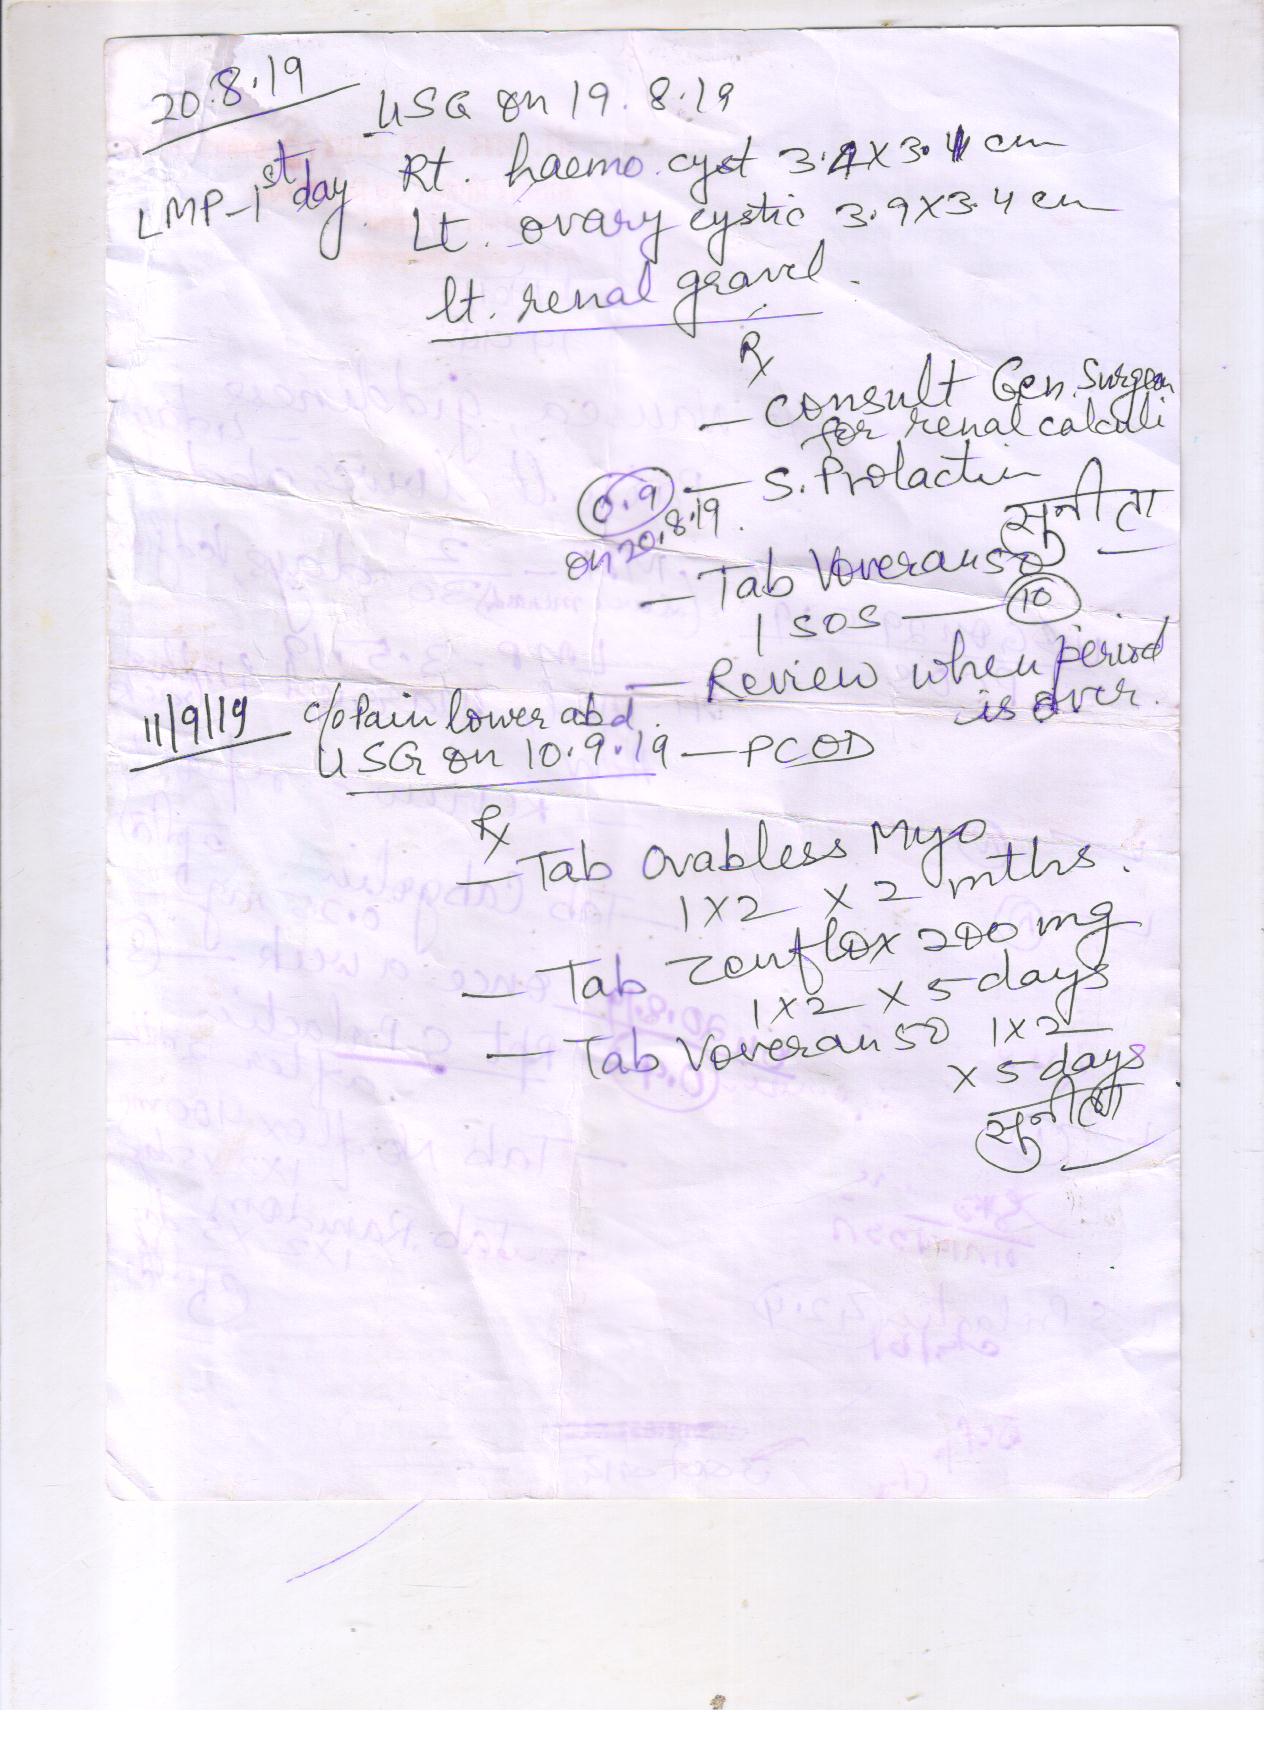 20.8.19
USG on 19.8.19
LMP-1st day.
Rt. haemo. cyst 3.4X3.4 cm
Lt. ovary cystic 3.9X3.4 cm
lt. renal gravel.
Rx
- Consult Gen. Surgeon
for renal calculi
0.9 - S. Prolactin
on 20.8.19.
सुनीता
- Tab Voveran 50
1 SOS - 10
- Review when period
is over.
11/9/19 c/o Pain lower abd.
USG on 10.9.19 - PCOD
Rx
- Tab Ovabless Myo
1X2 X 2 mths.
- Tab Zenflox 200 mg
1X2 X 5 days
- Tab Voveran 50 1X2
X 5 days
सुनीता